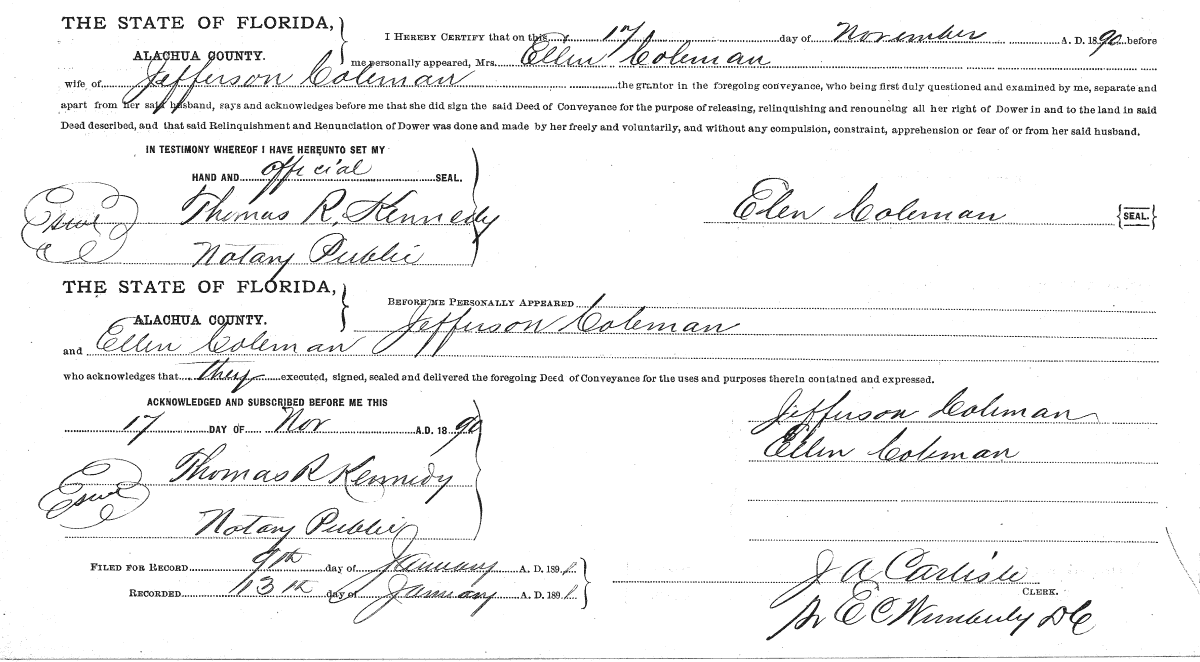 THE STATE OF FLORIDA,
ALACHUA COUNTY.
I HEREBY CERTIFY that on this 17 day of November A. D. 1890 before
me personally appeared, Mrs. Ellen Coleman
wife of Jefferson Coleman the grantor in the foregoing conveyance, who being first duly questioned and examined by me, separate and
apart from her said husband, says and acknowledges before me that she did sign the said Deed of Conveyance for the purpose of releasing, relinquishing and renouncing all her right of Dower in and to the land in said
Deed described, and that said Relinquishment and Renunciation of Dower was done and made by her freely and voluntarily, and without any compulsion, constraint, apprehension or fear of or from her said husband.
IN TESTIMONY WHEREOF I HAVE HEREUNTO SET MY
HAND AND official SEAL.
Thomas R. Kennedy
Notary Public
Elen Coleman {SEAL.}
THE STATE OF FLORIDA,
ALACHUA COUNTY.
BEFORE ME PERSONALLY APPEARED
Jefferson Coleman
and Ellen Coleman
who acknowledges that they executed, signed, sealed and delivered the foregoing Deed of Conveyance for the uses and purposes therein contained and expressed.
ACKNOWLEDGED AND SUBSCRIBED BEFORE ME THIS
17 DAY OF Nov A.D. 1890
Thomas R Kennedy
Notary Public
Jefferson Coleman
Ellen Coleman
FILED FOR RECORD 9th day of January A. D. 1891
RECORDED 13th day of January A. D. 1891
J A Carlisle
CLERK.
E C Wimberly DC